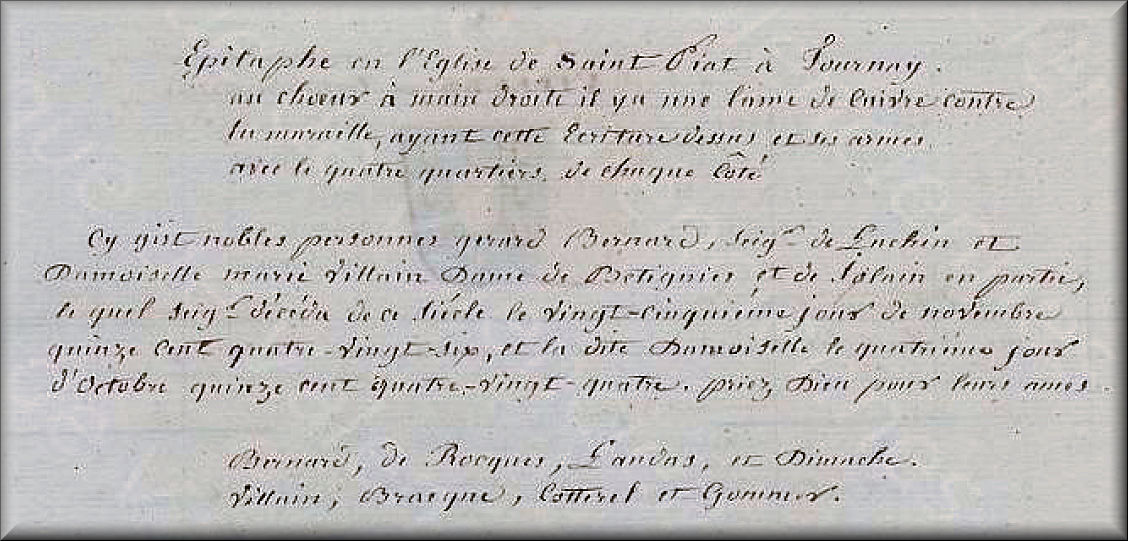 Epitaphe en l'Eglise de Saint Piat à Tournay.
au choeur à main droite il ya une lame de Cuivre contre
la muraille, ayant cette Ecriture dessus et ses armes
avec le quatre quartiers de chaque Côté
Cy gist nobles personnes gerard Bernard, Seigr de Luchin et
Damoiselle marie Villain Dame de Betignies et de Tplain en partie,
le quel Seigr décéda de ce siécle le vingt-cinquiéme jour de novembre
quinze Cent quatre-vingt-six, et la dite Damoiselle le quatriéme jour
d'Octobre quinze cent quatre-vingt-quatre. priez Dieu pour leurs ames.
Bernard, de Rocques, Landas, et Dimache.
Villain, Bracque, Cotterel et Gommer.